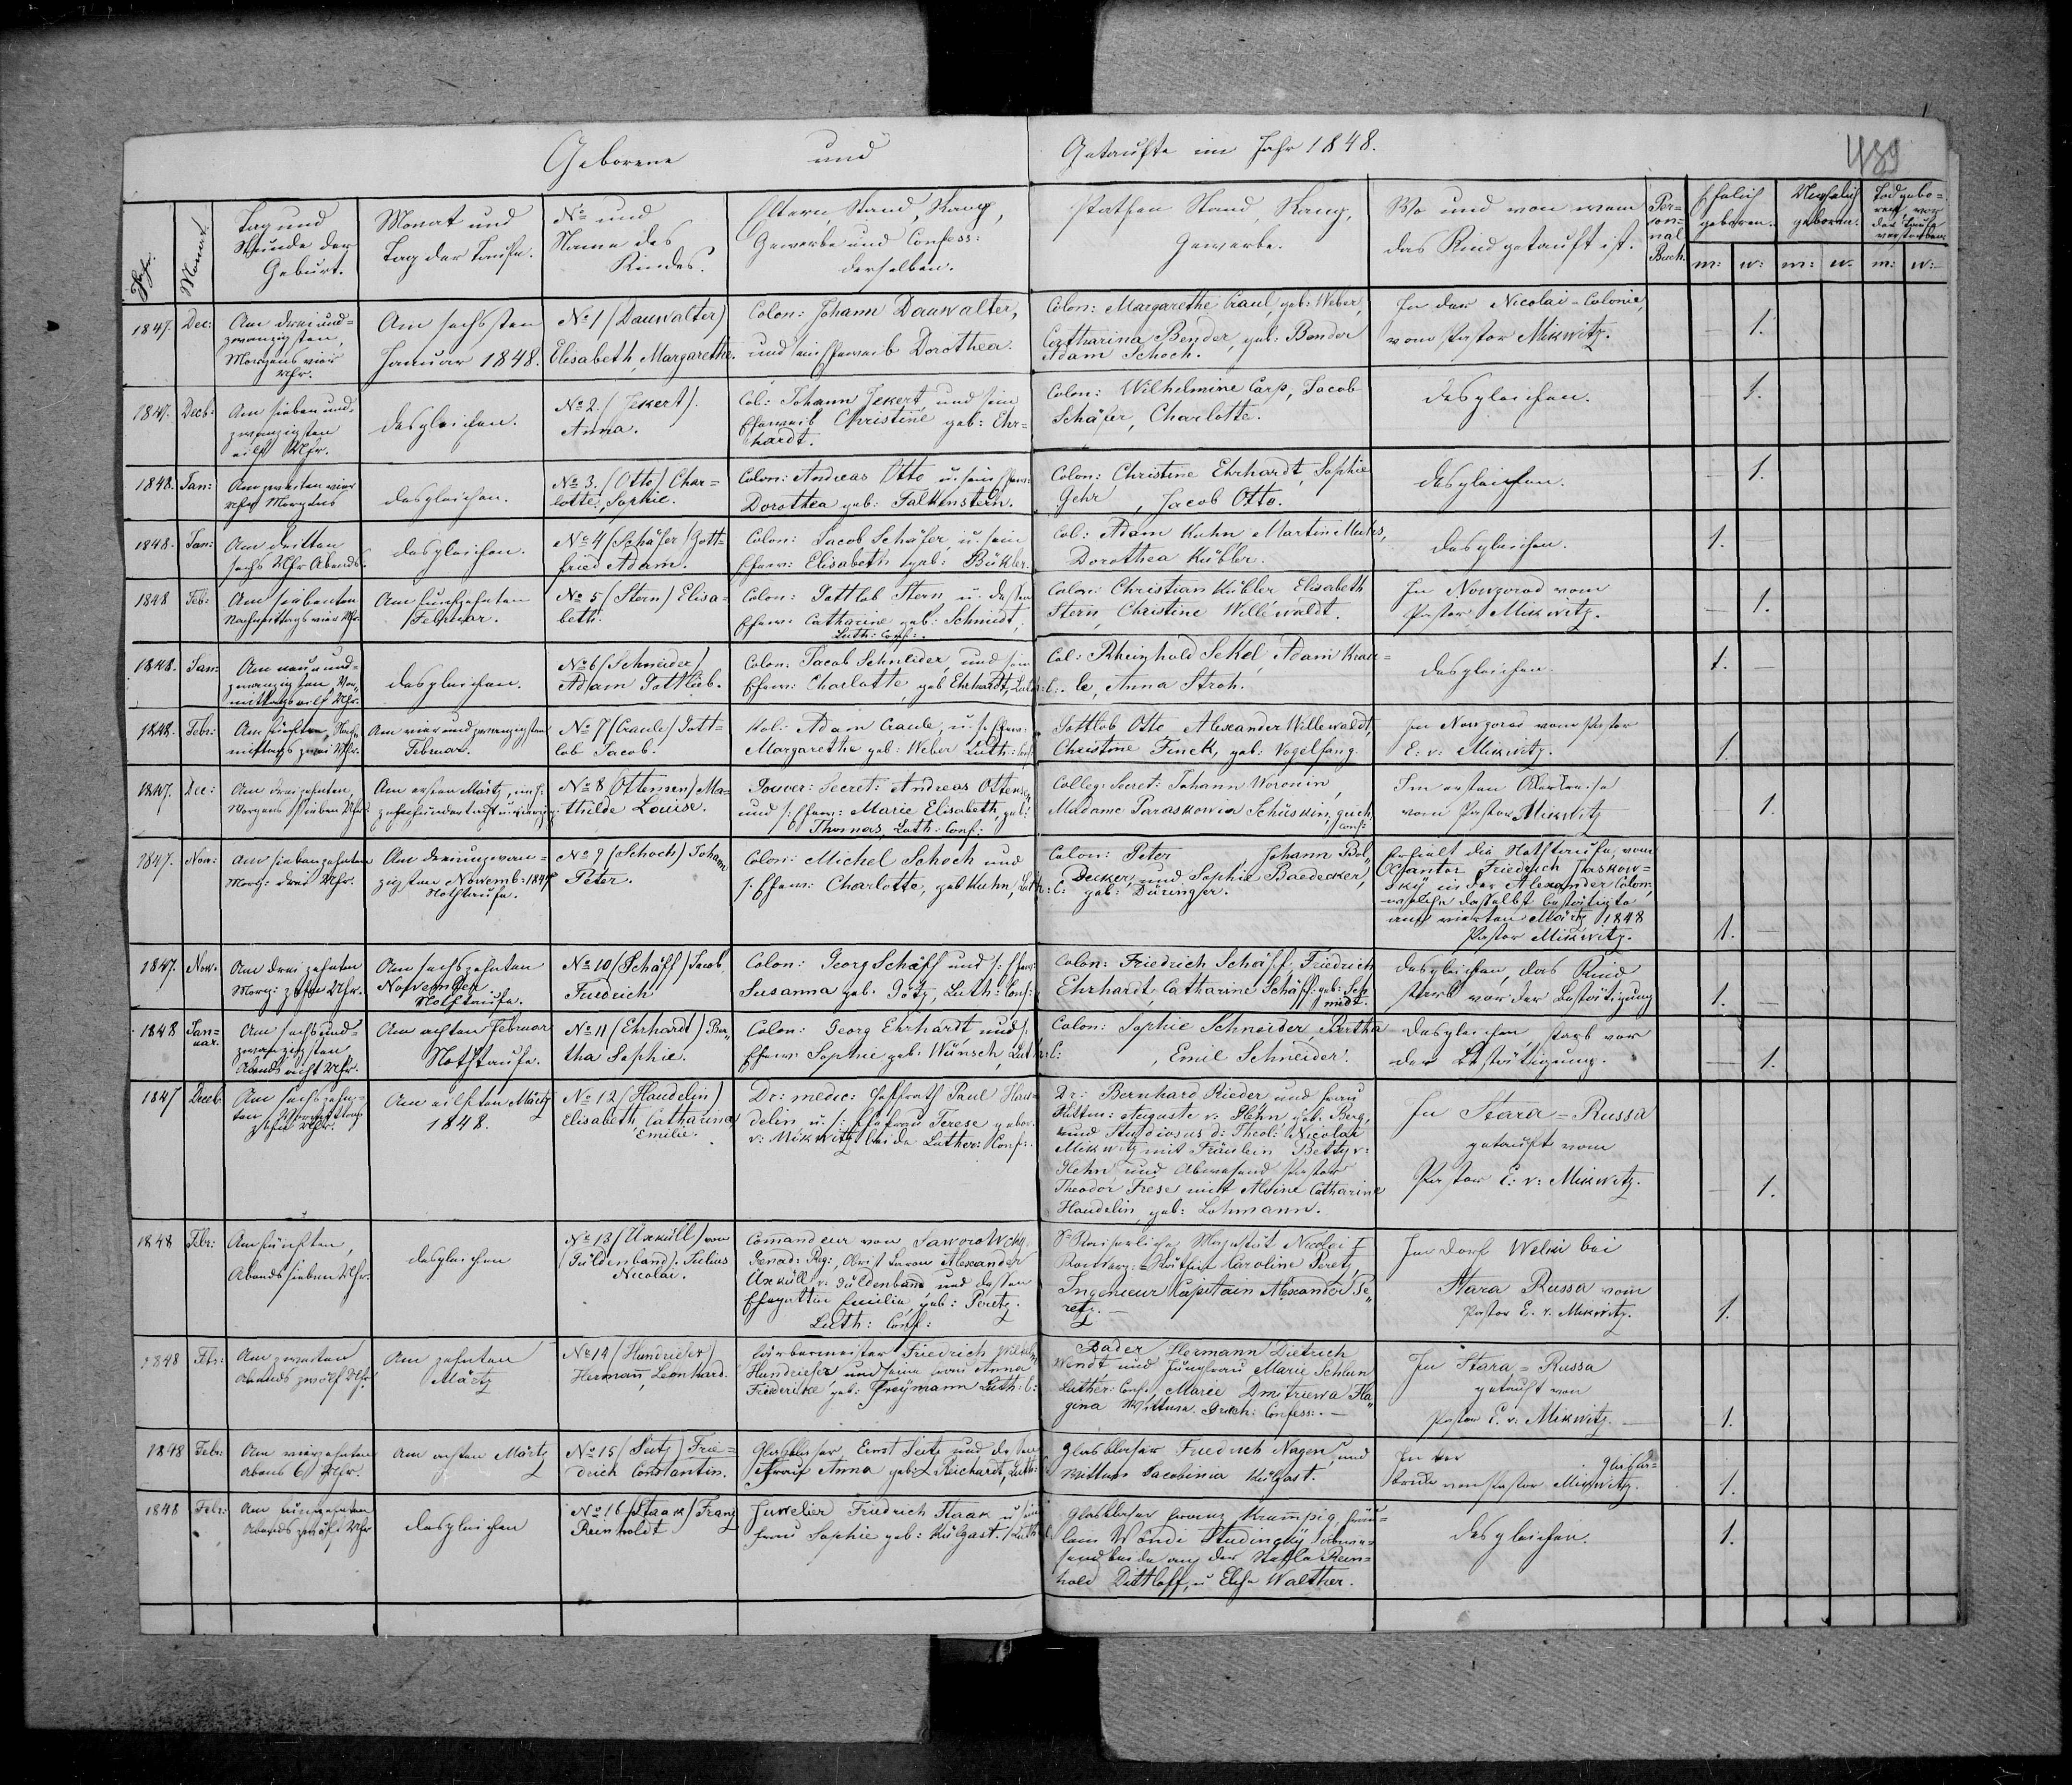 Geborene und Getaufte im Jahr 1848.
489
Jahr.
Monat.
Tag und
Stunde der
Geburt.
Monat und
Tag der Taufe.
No und
Name des
Kindes.
Eltern Stand, Rang,
Gewerbe und Confess:
derselben.
Pathen Stand, Rang,
Gewerbe.
Wo und von wem
das Kind getauft ist.
Per=
son=
nal
Buch.
Ehelich
geboren.
Unehelich
geboren.
Todgebo=
ren, vor
der Taufe
verstorben
m: w: m: w. m: w:
1847. Dec:
Am drei und=
zwanzigsten,
Morgens vier
Uhr.
Am sechsten
Januar 1848.
No 1 (Dauwalter)
Elisabeth, Margaretha.
Colon: Johann Dauwalter,
und sein Eheweib Dorothea.
Colon: Margarethe Craul, geb: Weber,
Catharina Bender, geb: Bender
Adam Schoch.
In der Nicolai=Colonie,
vom Pastor Mikwitz.
1.
1847. Decb:
Am sieben und
zwanzigsten
eilf Uhr.
desgleichen.
No 2. (Jekert).
Anna.
Col: Johann Jekert und sein
Eheweib Christine geb: Ehr=
hardt.
Colon: Wilhelmine Carp, Jacob
Schäfer, Charlotte.
desgleichen.
1.
1848. Jan:
Am zweiten vier
Uhr Morgens
desgleichen.
No 3. (Otto) Char=
lotte, Sophie.
Colon: Andreas Otto u. sein Ehew:
Dorothea geb: Falkenstern.
Colon: Christine Ehrhardt, Sophie
Gehr, Jacob Otto.
desgleichen.
1.
1848. Jan:
Am dritten
sechs Uhr Abends.
desgleichen.
No 4 (Schäfer) Gott=
fried Adam.
Colon: Jacob Schäfer, u. sein
Ehew: Elisabeth geb: Bükler.
Col: Adam Kuhn, Martin
Dorothea Kübler.
desgleichen.
1.
1848 Feb:
Am siebenten
Nachmittags vier Uhr.
Am funfzehnten
Februar.
No 5 (Stern) Elisa=
beth.
Colon: Gottlob Stern u. dessen
Ehew: Catharine geb: Schmidt,
Luth: Conf:
Colon: Christian Kübler Elisabeth
Stern, Christine Willewaldt.
In Nowgorod vom
Pastor Mikwitz.
1.
1848. Jan:
Am neun und=
zwanzigsten Vor=
mittags eilf Uhr.
desgleichen.
No 6 (Schneider)
Adam Gottlieb.
Colon: Jacob Schneider, und sein
Ehew: Charlotte, geb Ehrhardt, Luth: C:
Col: Rheinhold Sekel, Adam Krau=
le, Anna Stroh.
desgleichen
1.
1848. Febr:
Am fünften, Nach=
mittags zwei Uhr.
Am vier und zwanzigsten
Februar.
No 7 (Craule) Gott=
lob Jacob.
Kol: Adam Craule, u. s. Ehew:
Margaretha geb: Weber Luth: Conf
Gottlob Otto Alexander Willewaldt,
Christine Finck, geb: Vogelsang.
In Nowgorod vom Pastor
E: v: Mikwitz.
1.
1847. Dec:
Am dreizehnten,
Morgens sieben Uhr
Am ersten Märtz,
No 8 Ottensen) Ma=
thilde Louise.
Gouver: Secret: Andreas Ottensen
und s: Ehew: Marie Elisabeth, geb:
Thomas, Luth: Conf:
Colleg: Secret: Johann Woronin,
Madame Paraskowia Schüskin, griech
Conf:
Im ersten
vom Pastor Mikwitz
1.
1847. Nov:
am siebenzehnten
Morg: drei Uhr.
Am dreiundzwan=
zigsten Novemb: 1847
Nothtaufe.
No 9 (Schoch) Johann
Peter.
Colon: Michel Schoch und
s: Ehew: Charlotte, geb Kuhn, Luth: C:
Colon: Peter Johann Bol
Decker, und Sophie Baedecker,
geb: Düringer.
Erhielt die Nothtaufe vom
Cantor Friedrich Jaskow=
sky in der Alexander Colon:
welche daselbst bestätigte
am vierten Märtz 1848
Pastor Mikwitz.
1.
1847. Nov.
Am dreizehnten
Morg: zehn Uhr.
Am sechszehnten
November
Nothtaufe.
No 10 (Schäff) Jacob,
Friedrich
Colon: Georg Schäff und s: Ehew:
Susanna geb. Götz, Luth: Conf:
Colon: Friedrich Schäff, Friedrich
Ehrhardt, Catharine Schäff, geb: Sch
midt.
desgleichen, das Kind
starb vor der Bestätigung
1.
1848 Jan=
uar.
Am sechsund=
zwanzigsten
Abends acht Uhr.
Am achten Februar
Nothtaufe.
No 11 (Ehrhardt) Ber
tha Sophie.
Colon: Georg Ehrhardt, und s:
Ehew: Sophie geb: Wünsch, Luth: C:
Colon: Sophie Schneider, Bertha
, Emil Schneider.
desgleichen, starb vor
der Bestätigung.
1.
1847 Decb:
Am sechszehn=
ten Vormittags
zehn Uhr.
Am eilften Märtz
1848.
No 12 (Haudelin)
Elisabeth, Catharina
Emilie.
Dr: medic: Hofrath Paul Hau=
delin, u. s: Ehefrau Terese gebor:
v: Mikwitz beide Luther: Conf:
Dr: Bernhard Rieder und Frau
Auguste v: Hehn, geb: Berg,
und Studiosus d: Theol: Nicolai
Mikwitz mit Fräulein Betty v:
Hehn und Abwesend Pastor
Theodor Frese mit Alvine Catharine
Haudelin, geb: Lohmann.
In Stara=Russa
getauft vom
Pastor E: v: Mikwitz.
1.
1848 Febr:
Am fünften,
Abends sieben Uhr.
desgleichen
No 13 (Üxküll) von
(Güldenband). Julius
Nicolai.
Commandeur vom Saworowchen
Grenad: Reg:, Obrist Baron Alexander
Üxküll v: Güldenband und dessen
Ehegattin Emilia, geb: Peretz.
Luth: Conf:
Sr Kaiserliche Majestät Nicolai I
Caroline Peretz,
Ingenieur Kapitain Alexander Pe
retz.
Im Dorf Welki bei
Stara Russa vom
Pastor E. v. Mikwitz.
1.
1848 Feb:
Am zweiten
Abends zwölf Uhr
Am zehnten
Märtz
No 14 (Hundrieser)
Hermann, Leonhard.
Färbermeister Friedrich Wilhelm
Hundrieser und seine Frau Anna
Friederike geb: Freymann Luth: C:
Bader Hermann Dietrich
Wendt und Jungfrau Marie Schlun
Luther: Conf: Marie Dmitriewa Fla
gina Wittwe. Griech: Confess:
In Stara=Russa
getauft von
Pastor E. v: Mikwitz.
1.
1848 Febr:
Am vierzehnten
Abens 6 Uhr.
Am ersten Märtz
No 15 (Seitz) Frie=
drich Constantin.
Glasbläser, Ernst Seitz und dessen
Frau Anna geb: Reichardt, Luth:
Glasbläser Friedrich Nagen, und
Wittwe Jacobinia Külgast.
In der
vom Pastor Mikwitz.
1.
1848 Febr:
Abends zwölf Uhr
desgleichen
No 16 (Staak) Franz
Reinholdt
Juwelier Friedrich Staak u sein
Frau Sophie geb: Külgast. Luth
Glasbläser Franz Krumpig, Fräu=
lein
send beide auf der Stelle Rein=
hold Dittloff, u Elise Walther.
desgleichen.
1.